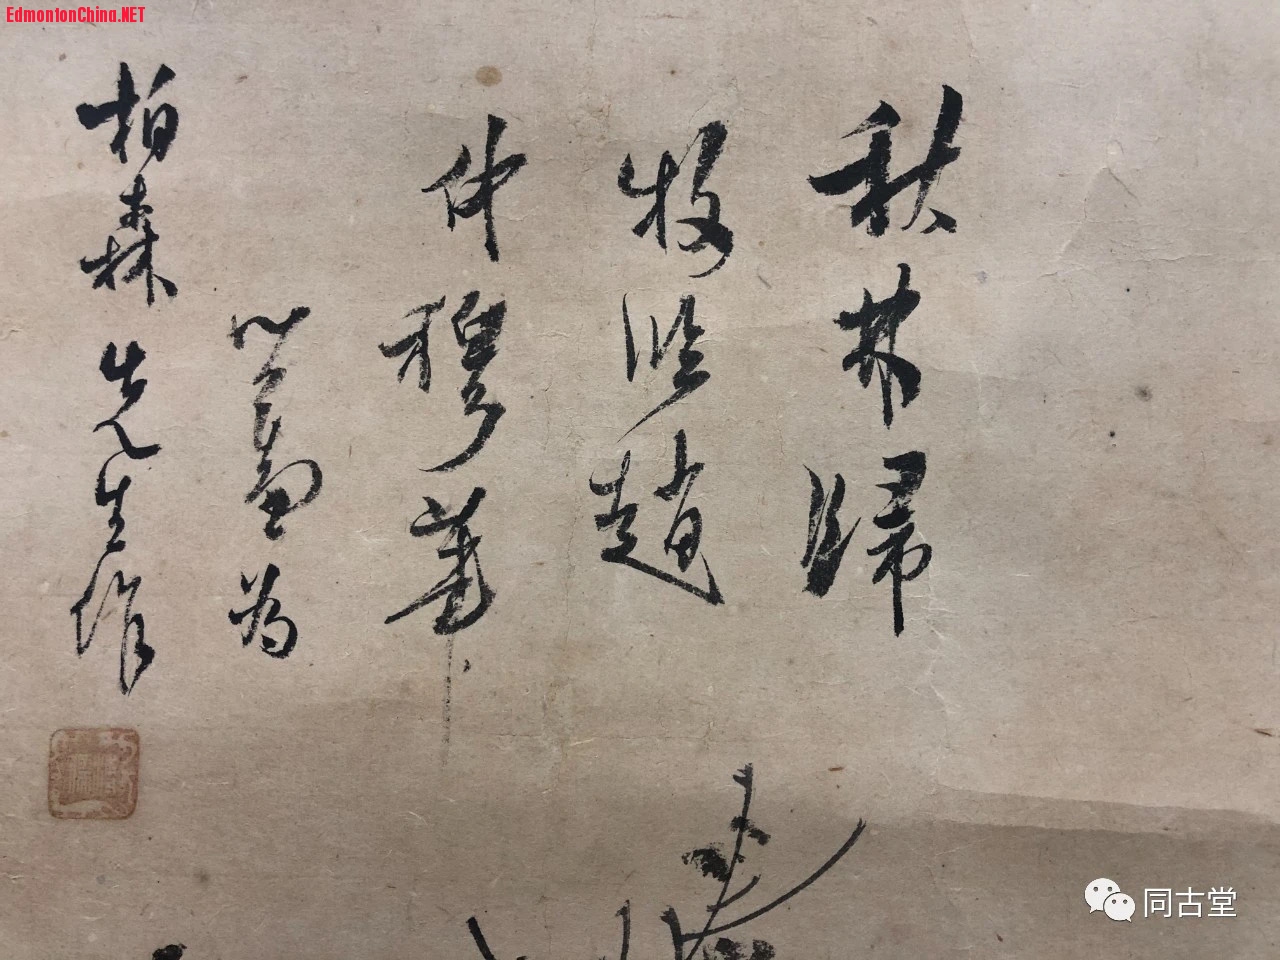 EdmontonChina.NET
秋林歸
牧臨趙
仲穆筆
心畬為
柏森先生作
同古堂